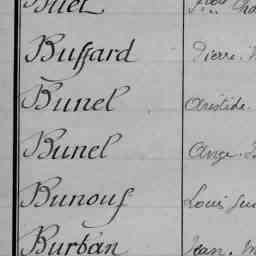 Buffard Pierre
Bunel Aristide
Bunel Ange
Bunouf Louis
Burban Jean